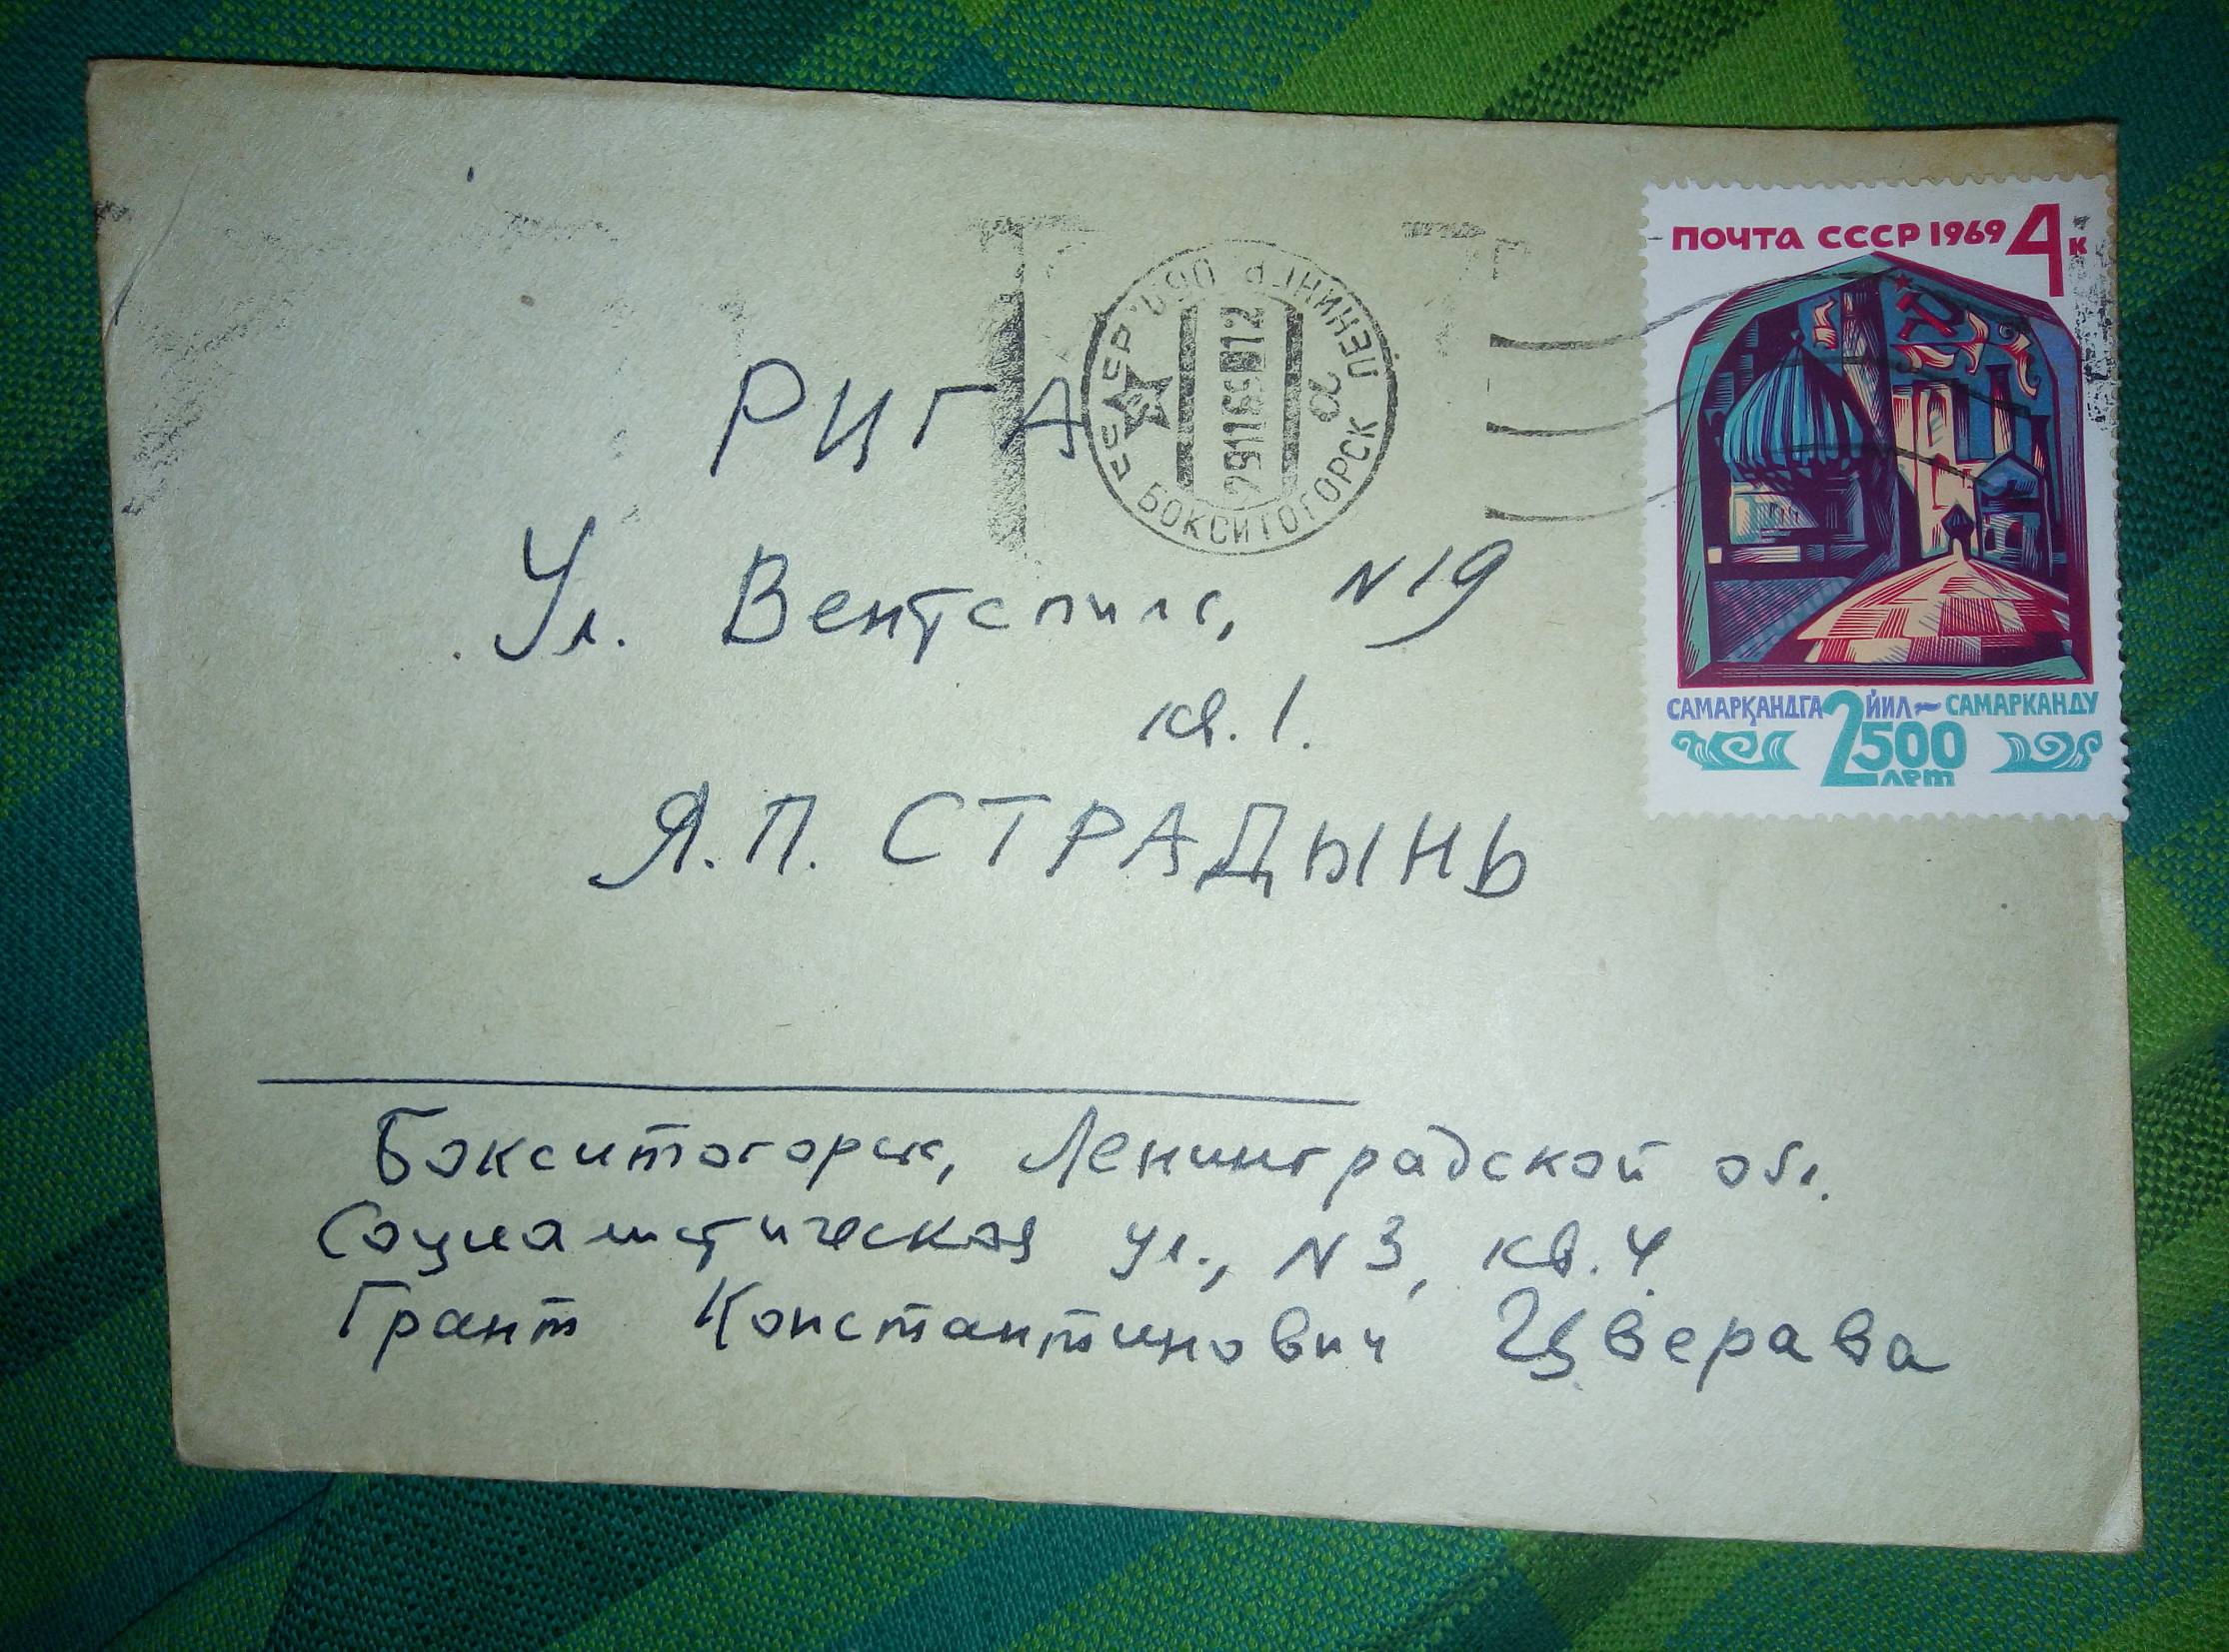 ПОЧТА СССР 1969 4к
САМАРҚАНДГА 2500 ЙИЛ ~ САМАРКАНДУ
2500
лет
БОКСИТОГОРСК ЛЕНИНГР. ОБЛ.
РИГА
Ул. Вентспилс, N 19
кв. 1.
Я. П. СТРАДЫНЬ
Бокситогорск, Ленинградской обл.
Социалистическая ул., N 3, кв. 4
Грант Константинович Цверава